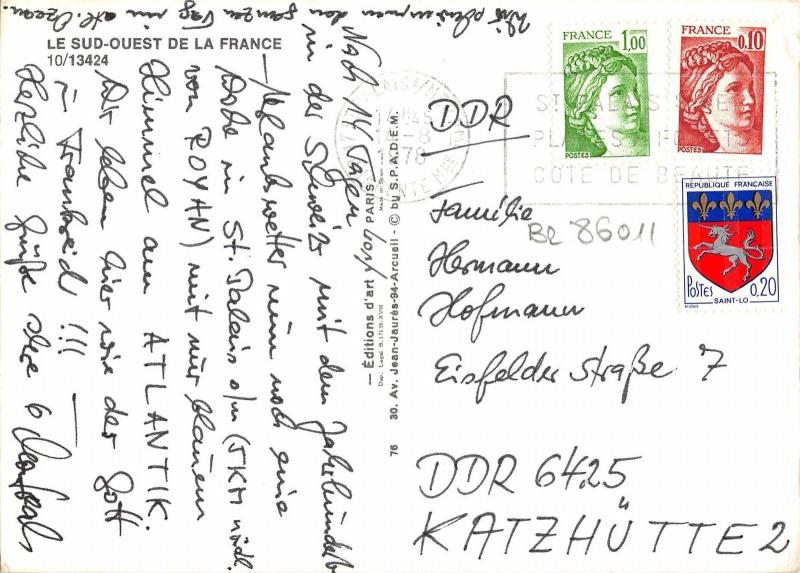 LE SUD-OUEST DE LA FRANCE
10/13424
Nach 14 Tagen
in der Schweiz mit dem
nun noch eine
Woche in St. Palais s/m (5KM nördl.
von ROYAN) mit nur blauem
Himmel am ATLANTIK.
Wir leben hier wie der Gott
in Frankreich !!!
Herzliche Grüße Ihre 6
ganzen Tag im atl. Ozean.
— Éditions d'art / PARIS —
Made in Spain
Dep. Legal B. 17139-XVIII
76 30. Av. Jean-Jaurès-94-Arcueil - © by S.P.A.D.E.M.
FRANCE
1,00
POSTES
FRANCE
0,10
POSTES
RÉPUBLIQUE FRANÇAISE
POSTES 0,20
SAINT-LO
COTE DE BEAUTE
DDR
Be 86011
Familie
Hermann
Hofmann
Eisfelder Straße 7
DDR 6425
KATZHÜTTE 2